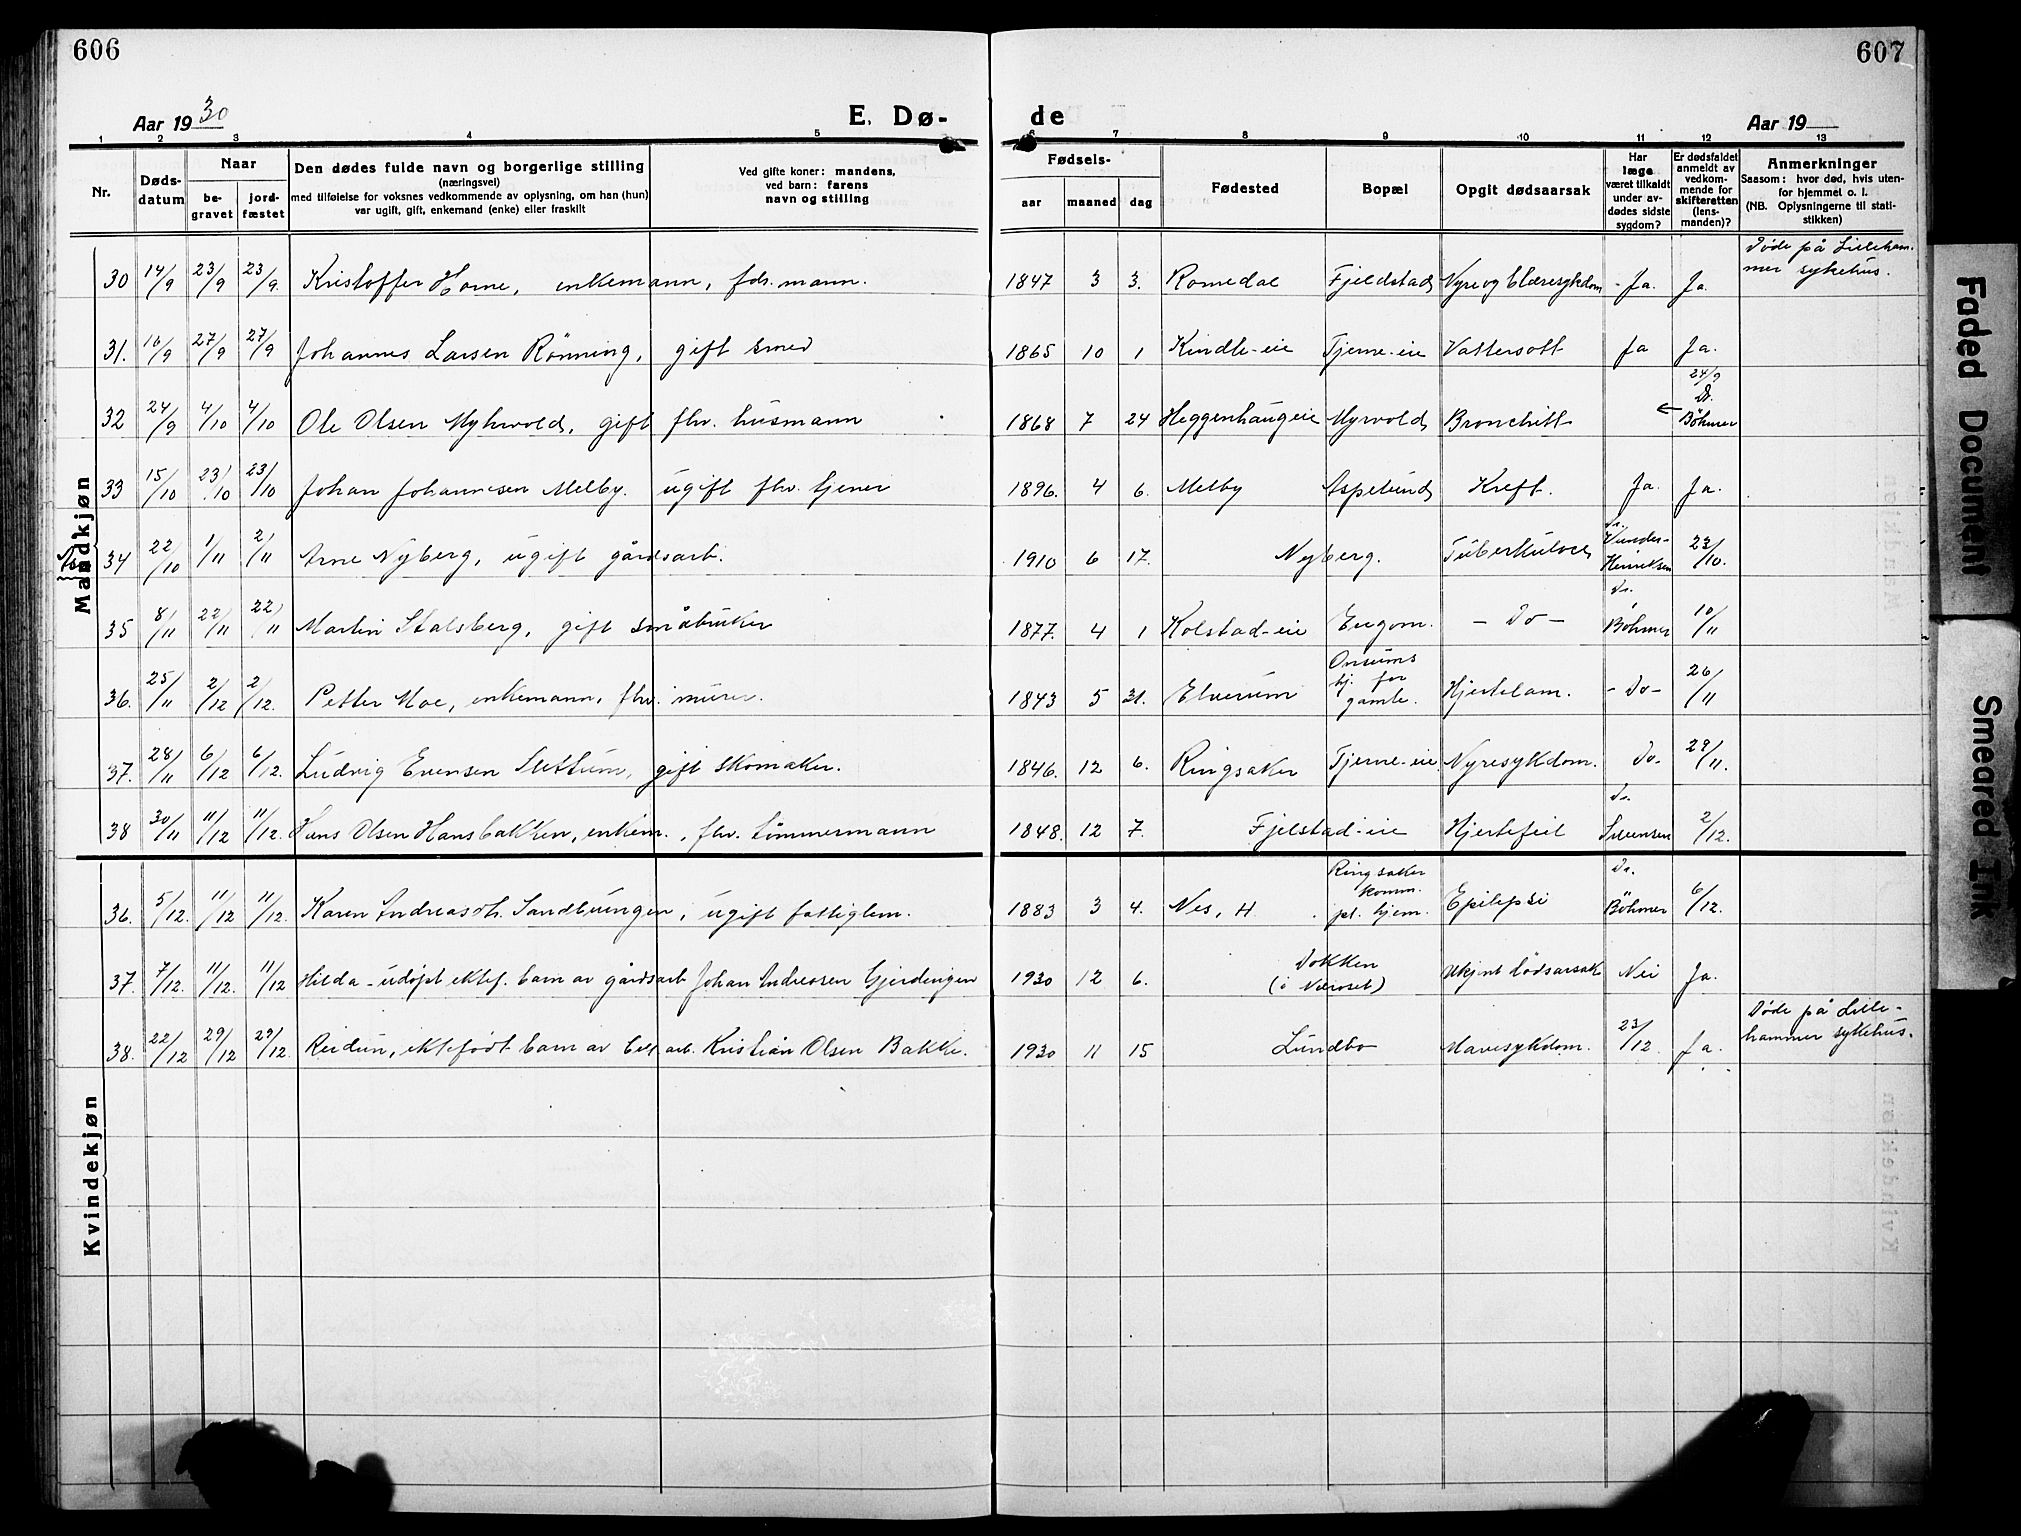 606
607
Aar 1930
E. Dø-
de
Aar 19
1 2 3 4 5 6 7 8 9 10 11 12 13
Nr.
Døds-
datum
Naar
be-
gravet
jord-
fæstet
Den dødes fulde navn og borgerlige stilling
(næringsvei)
med tilføielse for voksnes vedkommende av oplysning, om han (hun)
var ugift, gift, enkemand (enke) eller fraskilt
Ved gifte koner: mandens,
ved barn: farens
navn og stilling
Fødsels-
aar maaned dag
Fødested
Bopæl
Opgit dødsaarsak
Har
læge
været tilkaldt
under av-
dødes sidste
sygdom?
Er dødsfaldet
anmeldt av
vedkom-
mende for
skifteretten
(lens-
manden)?
Anmerkninger
Saasom: hvor død, hvis uten-
for hjemmet o. l.
(NB. Oplysningerne til stati-
stikken)
Mandkjøn
30 14/9 23/9 23/9. Kristoffer Horne, enkemann, fds. mann. 1847 3 3. Romedal Fjeldstad Nyre og blæresykdom - Ja. Ja. Døde på Lilleham-
mer sykehus.
31. 16/9 27/9 27/9 Johannes Larsen Rönning, gift smed 1865 10 1 Kindli-eie Tjerne-eie Vattersott Ja Ja.
32 24/9 4/10 4/10 Ole Olsen Myhrvold, gift fhv. husmann 1868 7 24 Heggenhaugeie Myrvold Bronchitt ← 24/9 Dr. Böhmer
33 15/10 23/10 23/10 Johan Johannesen Melby. ugift fhv. tjener 1896. 4 6. Melby Aspelund Kreft. Ja. Ja.
34 22/10 1/11 2/11 Arne Nyberg, ugift gårdsarb. 1910 6 17. Nyberg. Tuberkulose Dr. Wunder-
Henriksen 23/10.
35 8/11 22/11 22/11 Martin Stalsberg, gift småbruker 1877. 4 1 Kolstad-eie Engom. - Do - Dr. Böhmer 10/11
36. 25/11 2/12 2/12. Petter Moe, enkemann, fhv. murer. 1843 5 31. Elverum Onsums
hj. for
gamle. Hjertelam. - Do - 26/11
37. 28/11 6/12 6/12. Ludvig Evensen Slettum, gift skomaker. 1846. 12 6. Ringsaker Tjerne-eie Nyresykdom. Do- 29/11.
38 30/11 11/12 11/12. Hans Olsen Hansbakken, enkem., fhv. tömmermann 1848. 12 7. Fjelstad-eie Hjertefeil Dr. 2/12.
Kvindekjøn
36. 5/12. 11/12 11/12. Karen Andreasdt. Sandbungen, ugift fattiglem. 1883 3 4. Nes, H. Ringsaker
komm.
pl. hjem. Epilepsi Dr. Böhmer 6/12.
37. 7/12. 11/12. 11/12 Hilda - udöpt ektef. barn av gårdsarb Johan Andreasen Gjerdingen 1930 12 6. Dokken
(i Næroset) Ukjent dödsarsak Nei Ja.
38. 22/12 29/12 29/12. Reidun, ektefödt barn av arb. Kristian Olsen Bakke. 1930 11 15 Lundbo Mavesykdom. 23/12. Ja. Døde på Lille-
hammer sykehus.
Faded Document
Smeared Ink